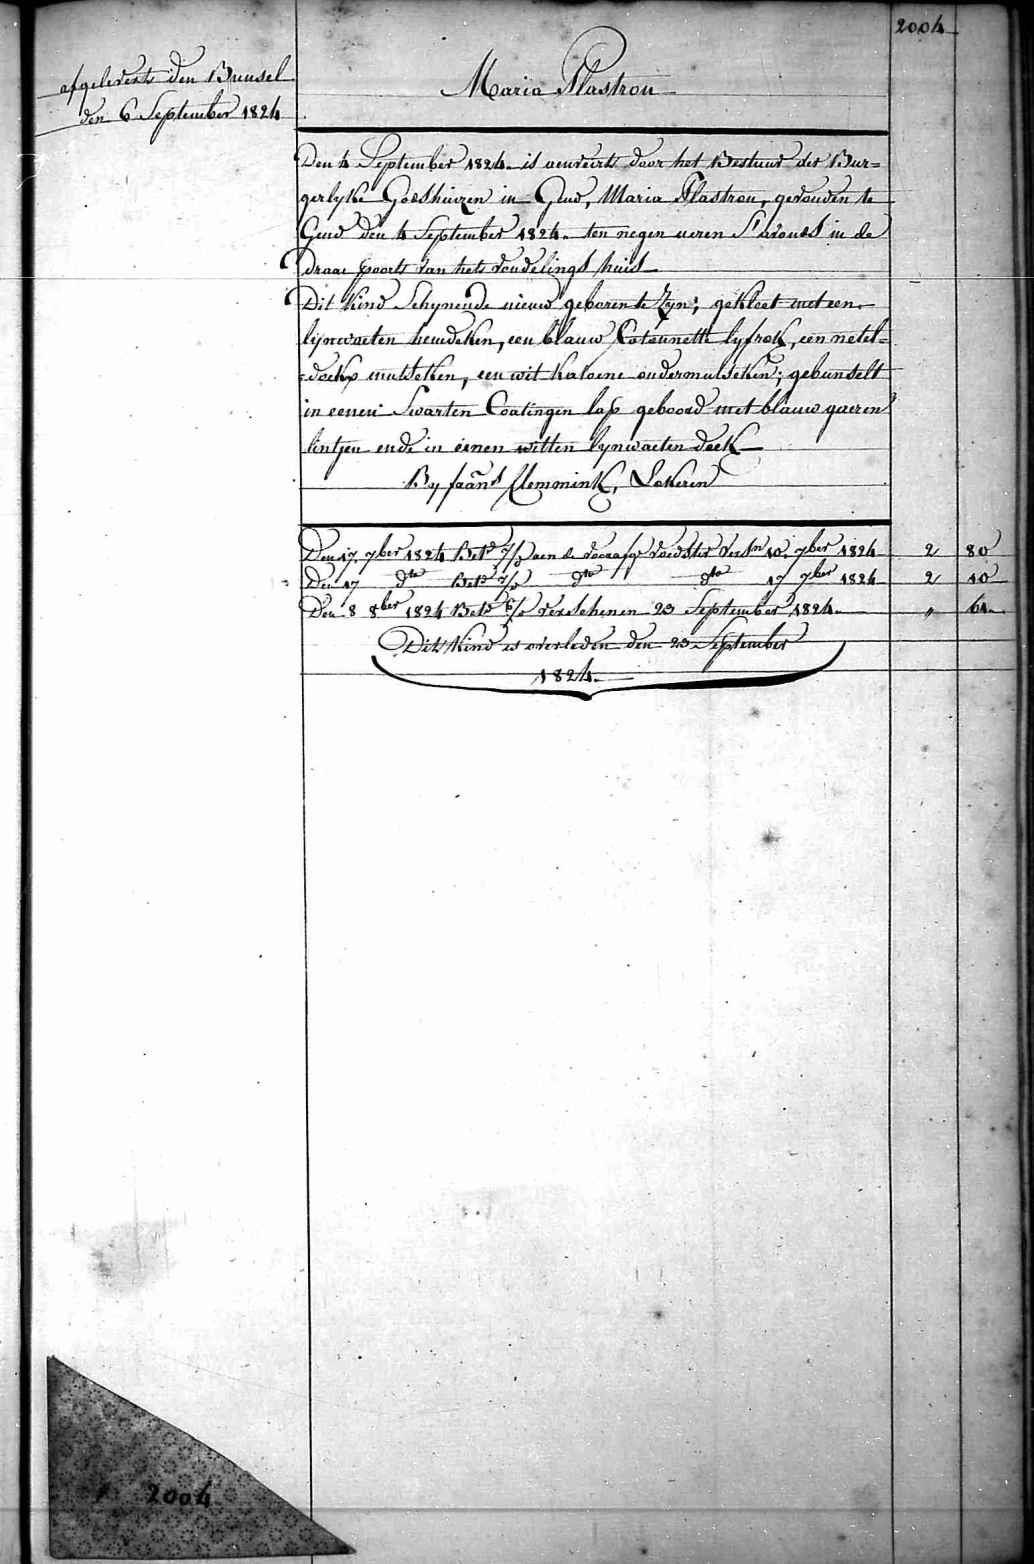 2004
afgelevert den Bunsel
den 6 September 1824
Maria Plastron
Den 4 September 1824 is aenveirt door het Bestuur der Bur=
gerlyke Godshuizen in Gend, Maria Plastron, gevonden te
Gend den 4 September 1824 ten negen ueren S'avonds in de
draae poorte van het vondelings huis
Dit Kind Schynende nieuw geboren te Zyn; gekleet met een
lijnwaeten hemdeken, een blauw Cotonnette lyfrok, een netel=
doekx mutseken, een wit katoene ondermutseken; gebunselt
in eenen Swarten Coatingen lap geboord met blauw gaeren
lintjen ende in eenen witten lynwaeten doek
By Clemmink, Lokeren
Den 17. 7ber 1824 Bet. aen de voedster 10. 7ber 1824 2 80
Den 17 dto Bet. dto dto 17 7ber 1824 2 10
Den 8 8ber 1824 Bet. verschenen 23 September 1824 „ 64
Dit Kind is overleden den 23 September
1824.
2004